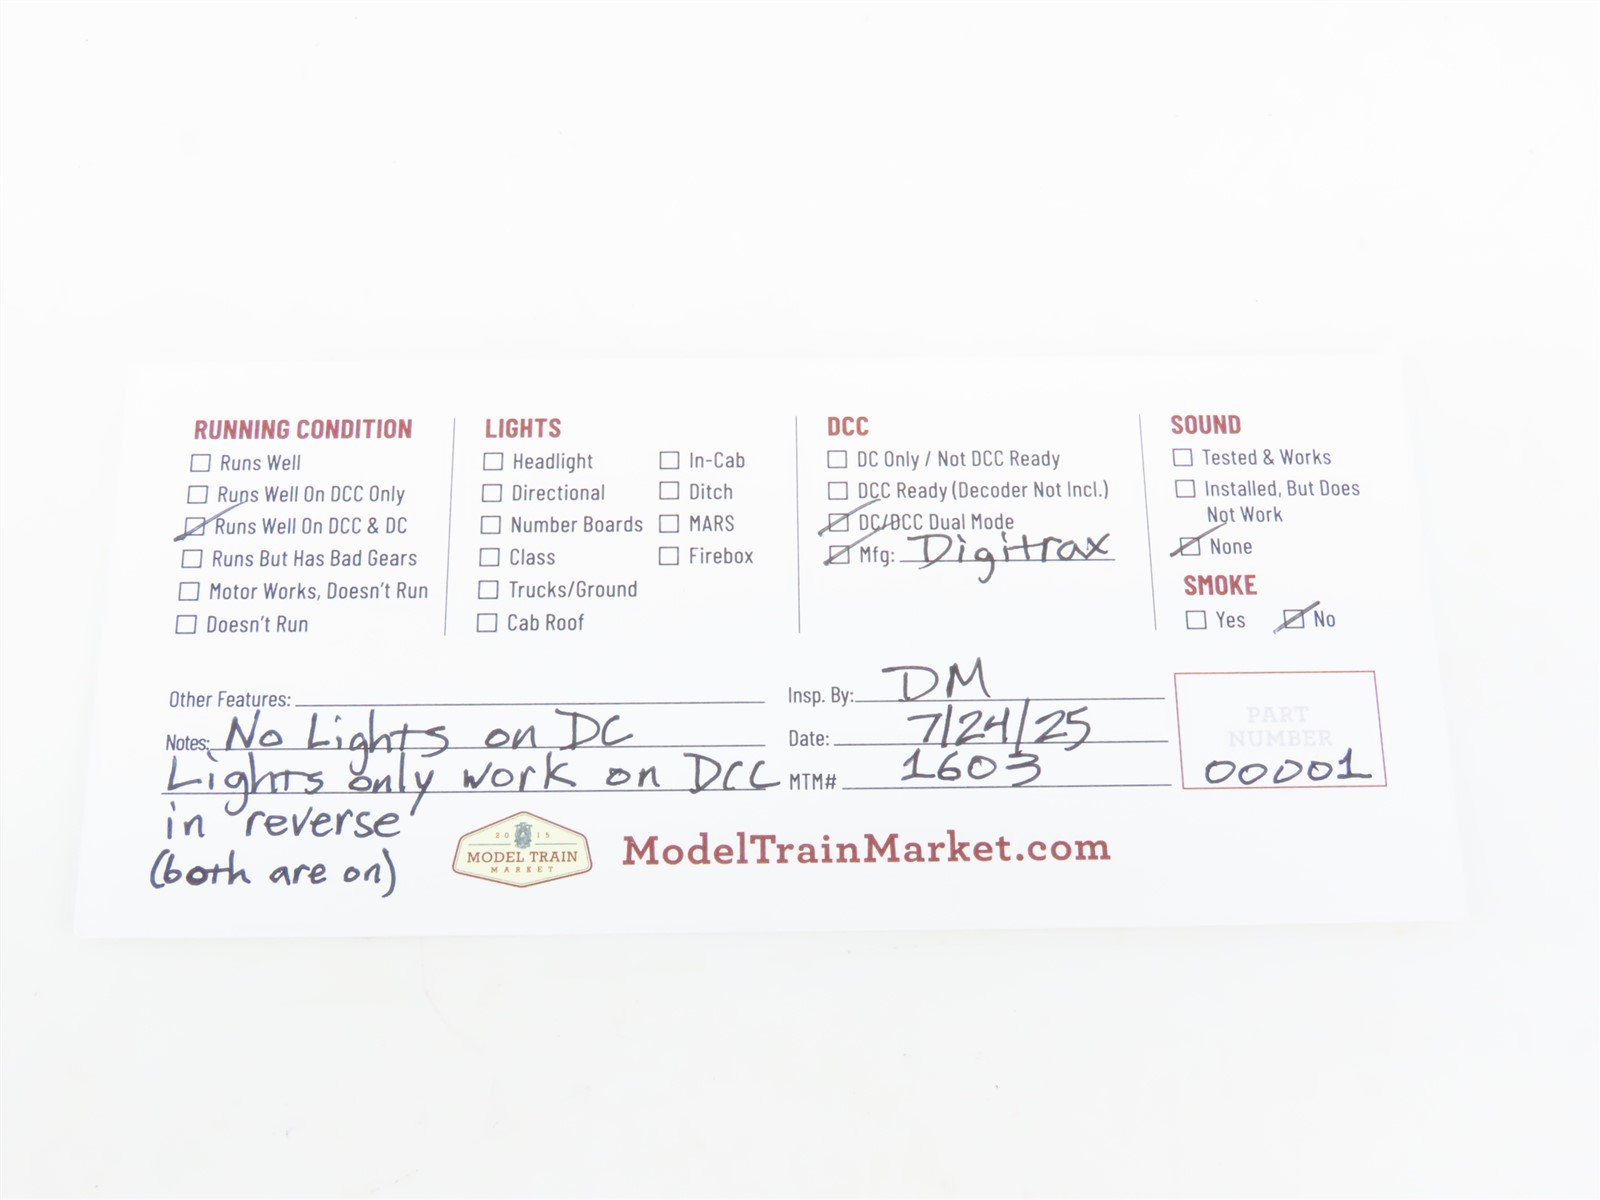 RUNNING CONDITION
Runs Well
Runs Well On DCC Only
Runs Well On DCC & DC
Runs But Has Bad Gears
Motor Works, Doesn't Run
Doesn't Run
LIGHTS
Headlight
Directional
Number Boards
Class
Trucks/Ground
Cab Roof
In-Cab
Ditch
MARS
Firebox
DCC
DC Only / Not DCC Ready
DCC Ready (Decoder Not Incl.)
DC/DCC Dual Mode
Mfg: Digitrax
SOUND
Tested & Works
Installed, But Does
Not Work
None
SMOKE
Yes No
Other Features:
Notes: No Lights on DC
Lights only work on DCC
in reverse
(both are on)
Insp. By: DM
Date: 7/24/25
MTM# 1603
PART
NUMBER
00001
2015
MODEL TRAIN
MARKET
ModelTrainMarket.com